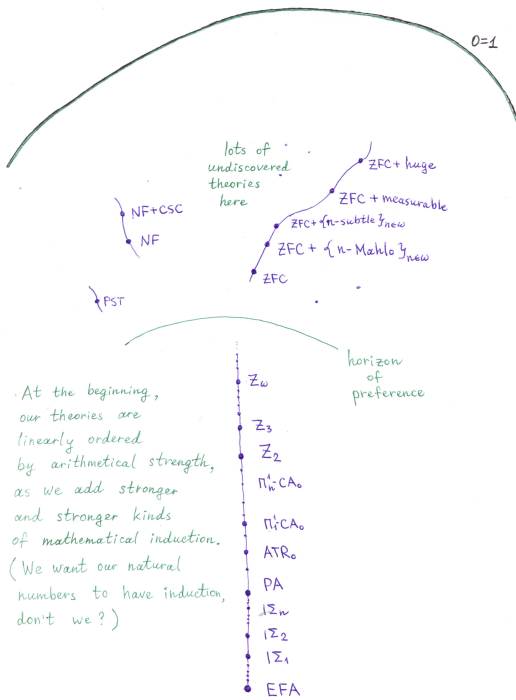 0=1
lots of
undiscovered
theories
here
ZFC + huge
ZFC + measurable
ZFC + {n-subtle}n∈ω
ZFC + {n-Mahlo}n∈ω
ZFC
NF+CSC
NF
PST
horizon
of
preference
At the beginning,
our theories are
linearly ordered
by arithmetical strength,
as we add stronger
and stronger kinds
of mathematical induction.
(We want our natural
numbers to have induction,
don't we?)
Zω
Z₃
Z₂
Π¹ₙ-CA₀
Π¹₁-CA₀
ATR₀
PA
IΣₙ
IΣ₂
IΣ₁
EFA